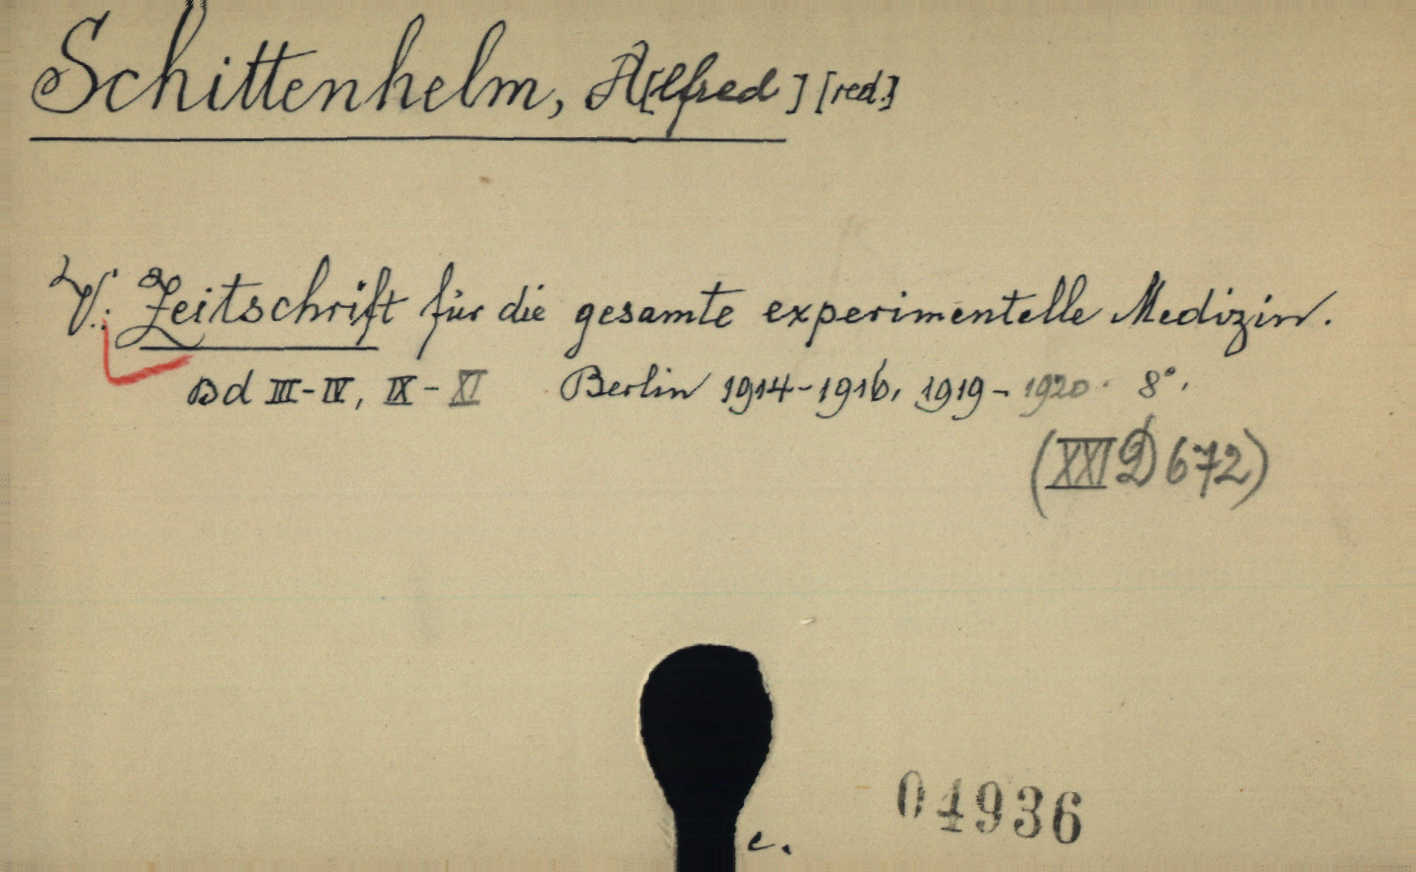 Schittenhelm, A[lfred] [red.]
V.: Zeitschrift für die gesamte experimentelle Medizin.
Bd III-IV, IX-XI Berlin 1914-1916, 1919-1920. 8°.
(XXI D 672)
04936
c.